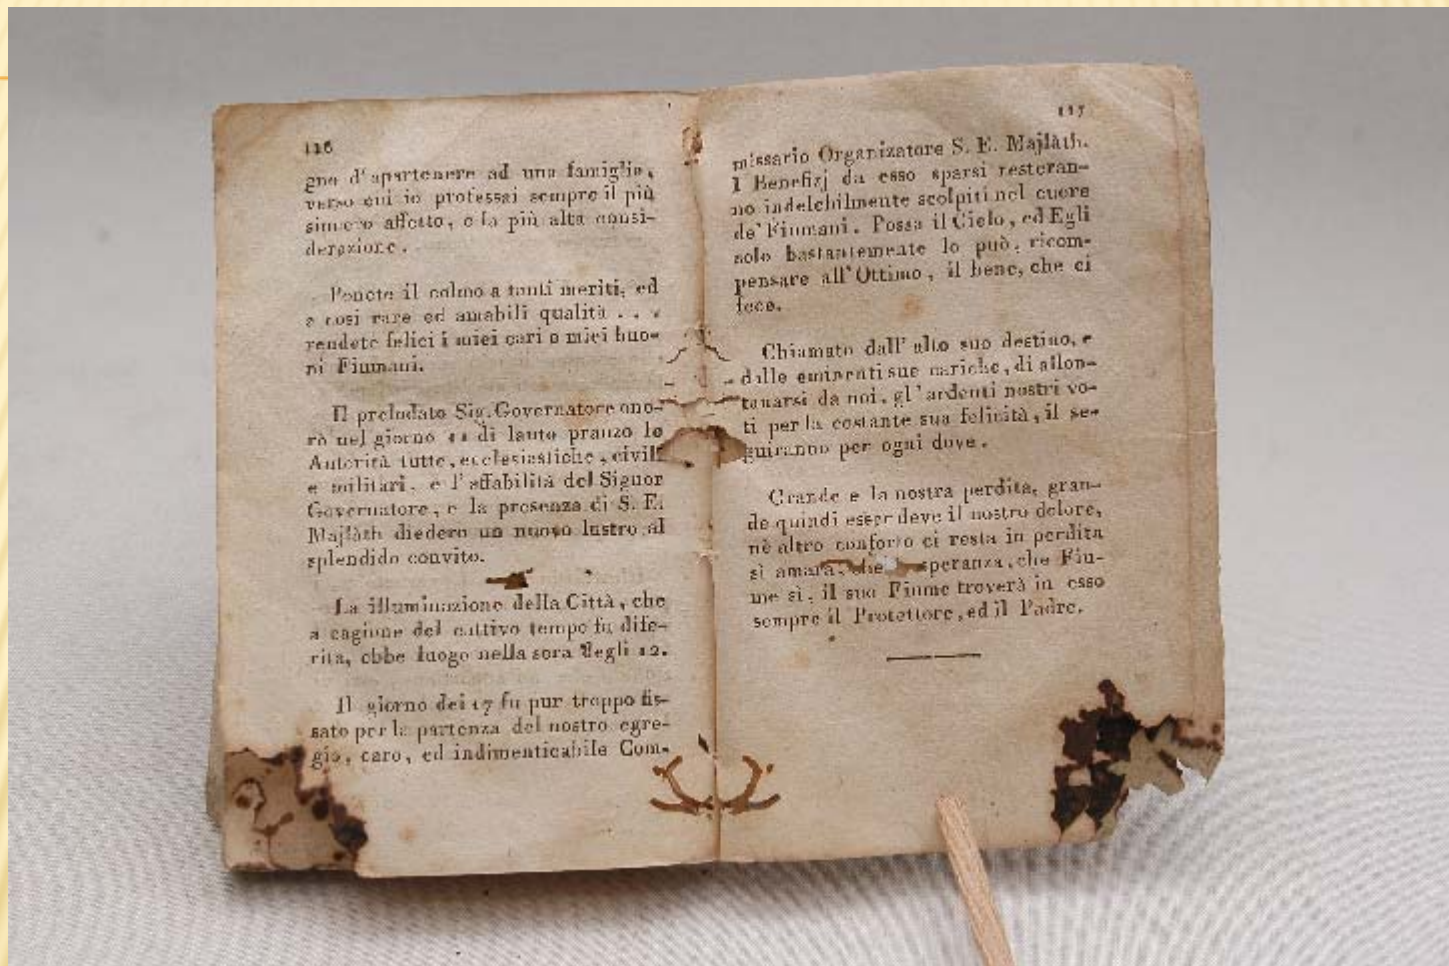 116
gno d'apartenere ad una famiglia,
verso cui io professai sempre il più
sincero affetto, e la più alta consi-
derazione.
Ponete il colmo a tanti meriti, ed
a così rare ed amabili qualità . . .
rendete felici i miei cari e miei buo-
ni Fiumani.
Il prelodato Sig. Governatore ono-
rò nel giorno 11 di lauto pranzo le
Autorità tutte, ecclesiastiche, civili
e militari, e l'affabilità del Signor
Governatore, e la presenza di S. E.
Majlàth diedero un nuovo lustro al
splendido convito.
La illuminazione della Città, che
a cagione del cattivo tempo fu dife-
rita, ebbe luogo nella sera degli 12.
Il giorno dei 17 fu pur troppo fis-
sato per la partenza del nostro egre-
gio, caro, ed indimenticabile Com-
117
missario Organizatore S. E. Majlàth.
I Benefizj da esso sparsi resteran-
no indelebilmente scolpiti nel cuore
de' Fiumani. Possa il Cielo, ed Egli
solo bastantemente lo può, ricom-
pensare all'Ottimo, il bene, che ci
fece.
Chiamato dall'alto suo destino, e
dalle eminenti sue cariche, di allon-
tanarsi da noi, gl'ardenti nostri vo-
ti per la costante sua felicità, il se-
guiranno per ogni dove.
Grande e la nostra perdita, gran-
de quindi esser deve il nostro dolore,
nè altro conforto ci resta in perdita
sì amara, che speranza, che Fiu-
me sì, il suo Fiume troverà in esso
sempre il Protettore, ed il Padre.